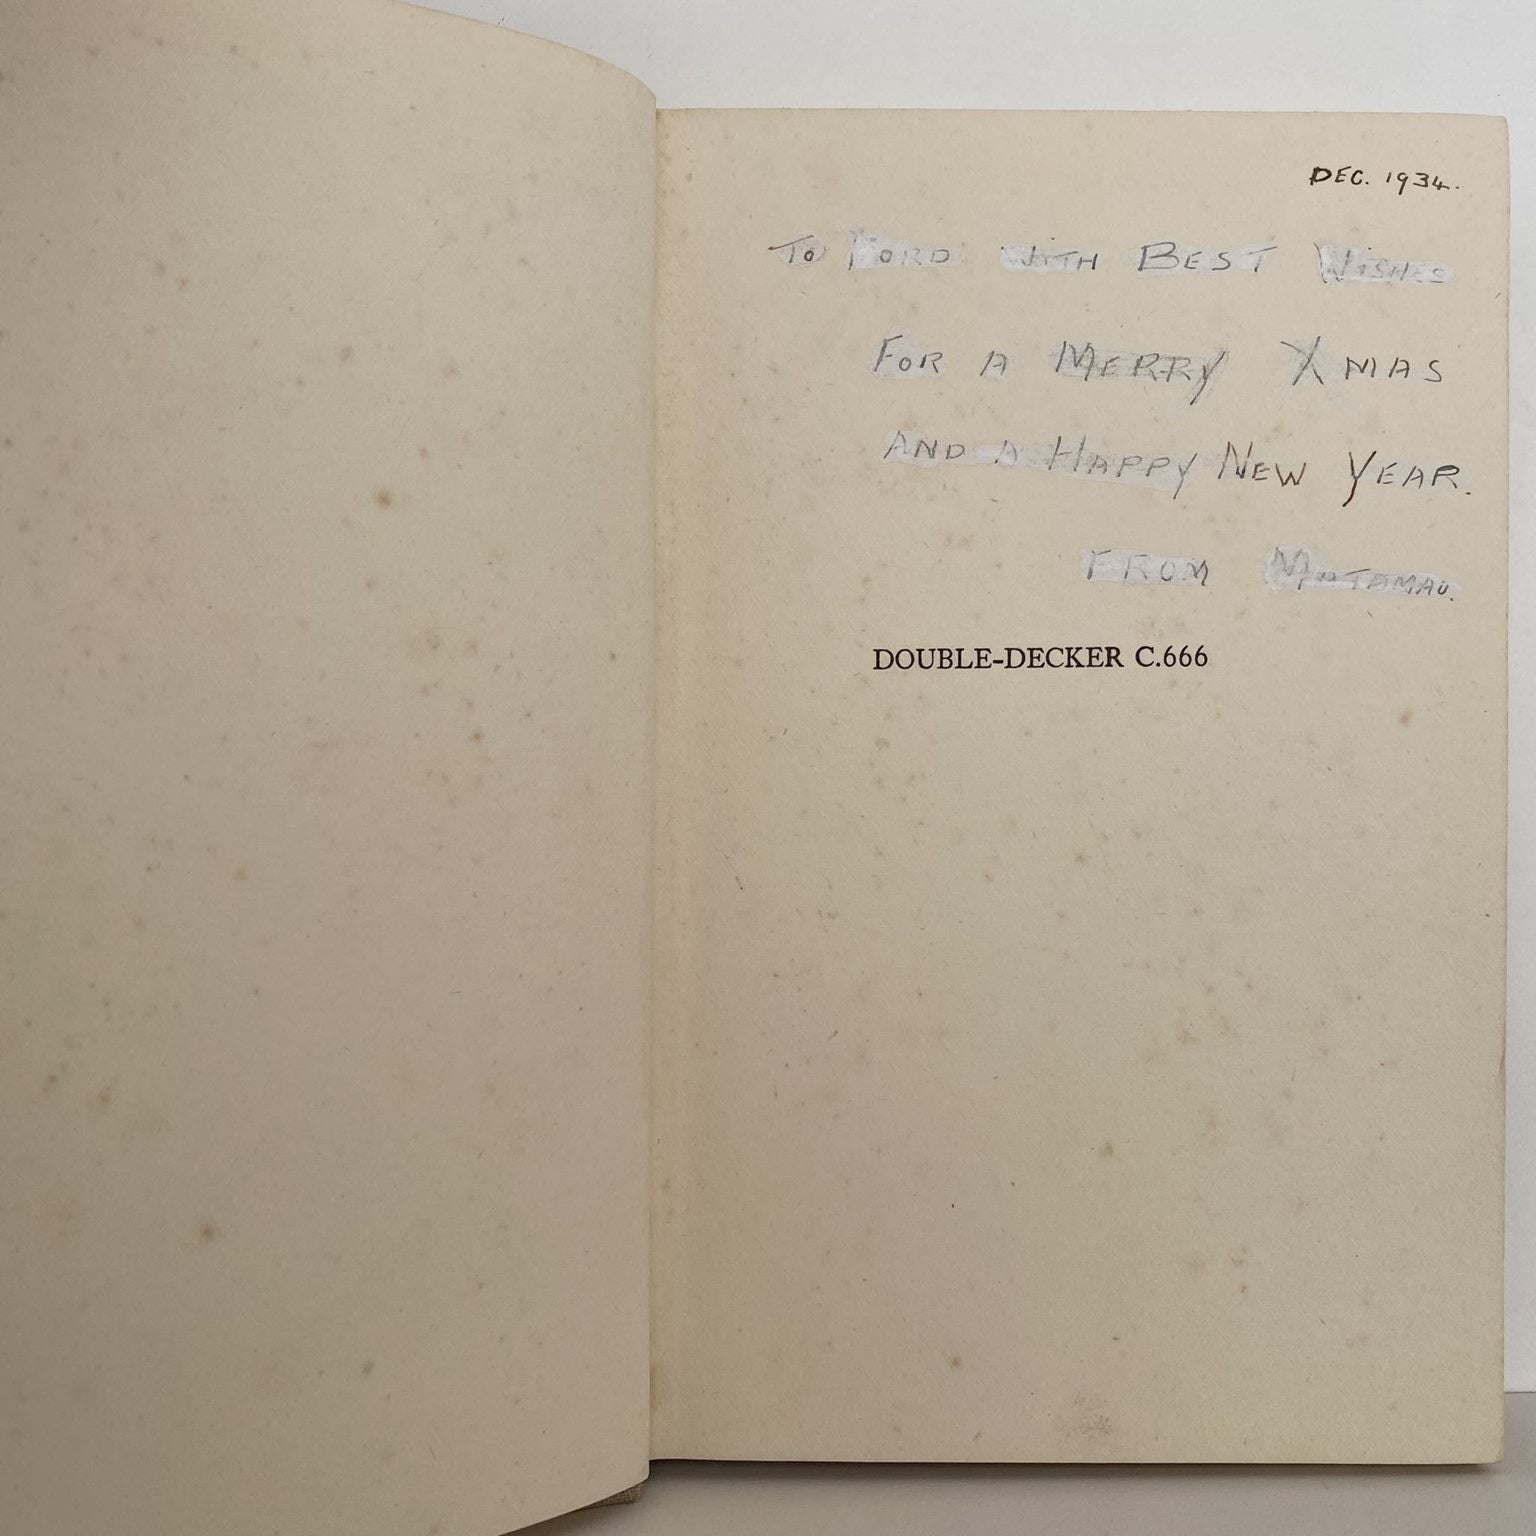 DEC. 1934.
To FORD WITH BEST WISHES
FOR A MERRY XMAS
AND A HAPPY NEW YEAR.
FROM MATAMAU.
DOUBLE-DECKER C.666